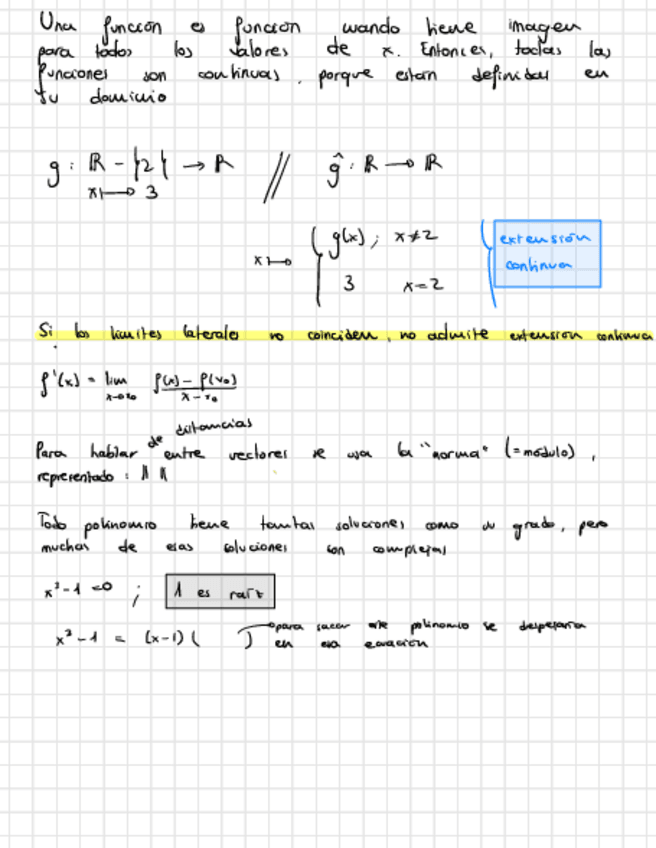 Una función es función cuando tiene imagen
para todos los valores de x. Entonces, todas las
funciones son continuas, porque estan definidas en
su dominio
g : ℝ - {2} → ℝ // ĝ : ℝ → ℝ
x ↦ 3
x ↦ { g(x) ; x≠2
3 x=2
extensión
continua
Si los limites laterales no coinciden, no admite extensión continua
f'(x) = lim x→x₀ f(x) - f(x₀) / x - x₀
Para hablar de distancias entre vectores se usa la "norma" (= módulo),
representado : || ||
Todo polinomio tiene tantas soluciones como su grado, pero
muchas de esas soluciones son complejas
x³-1 =0 ; 1 es raíz
x³-1 = (x-1) ( ) → para sacar este polinomio se despejaría
en esa ecuación